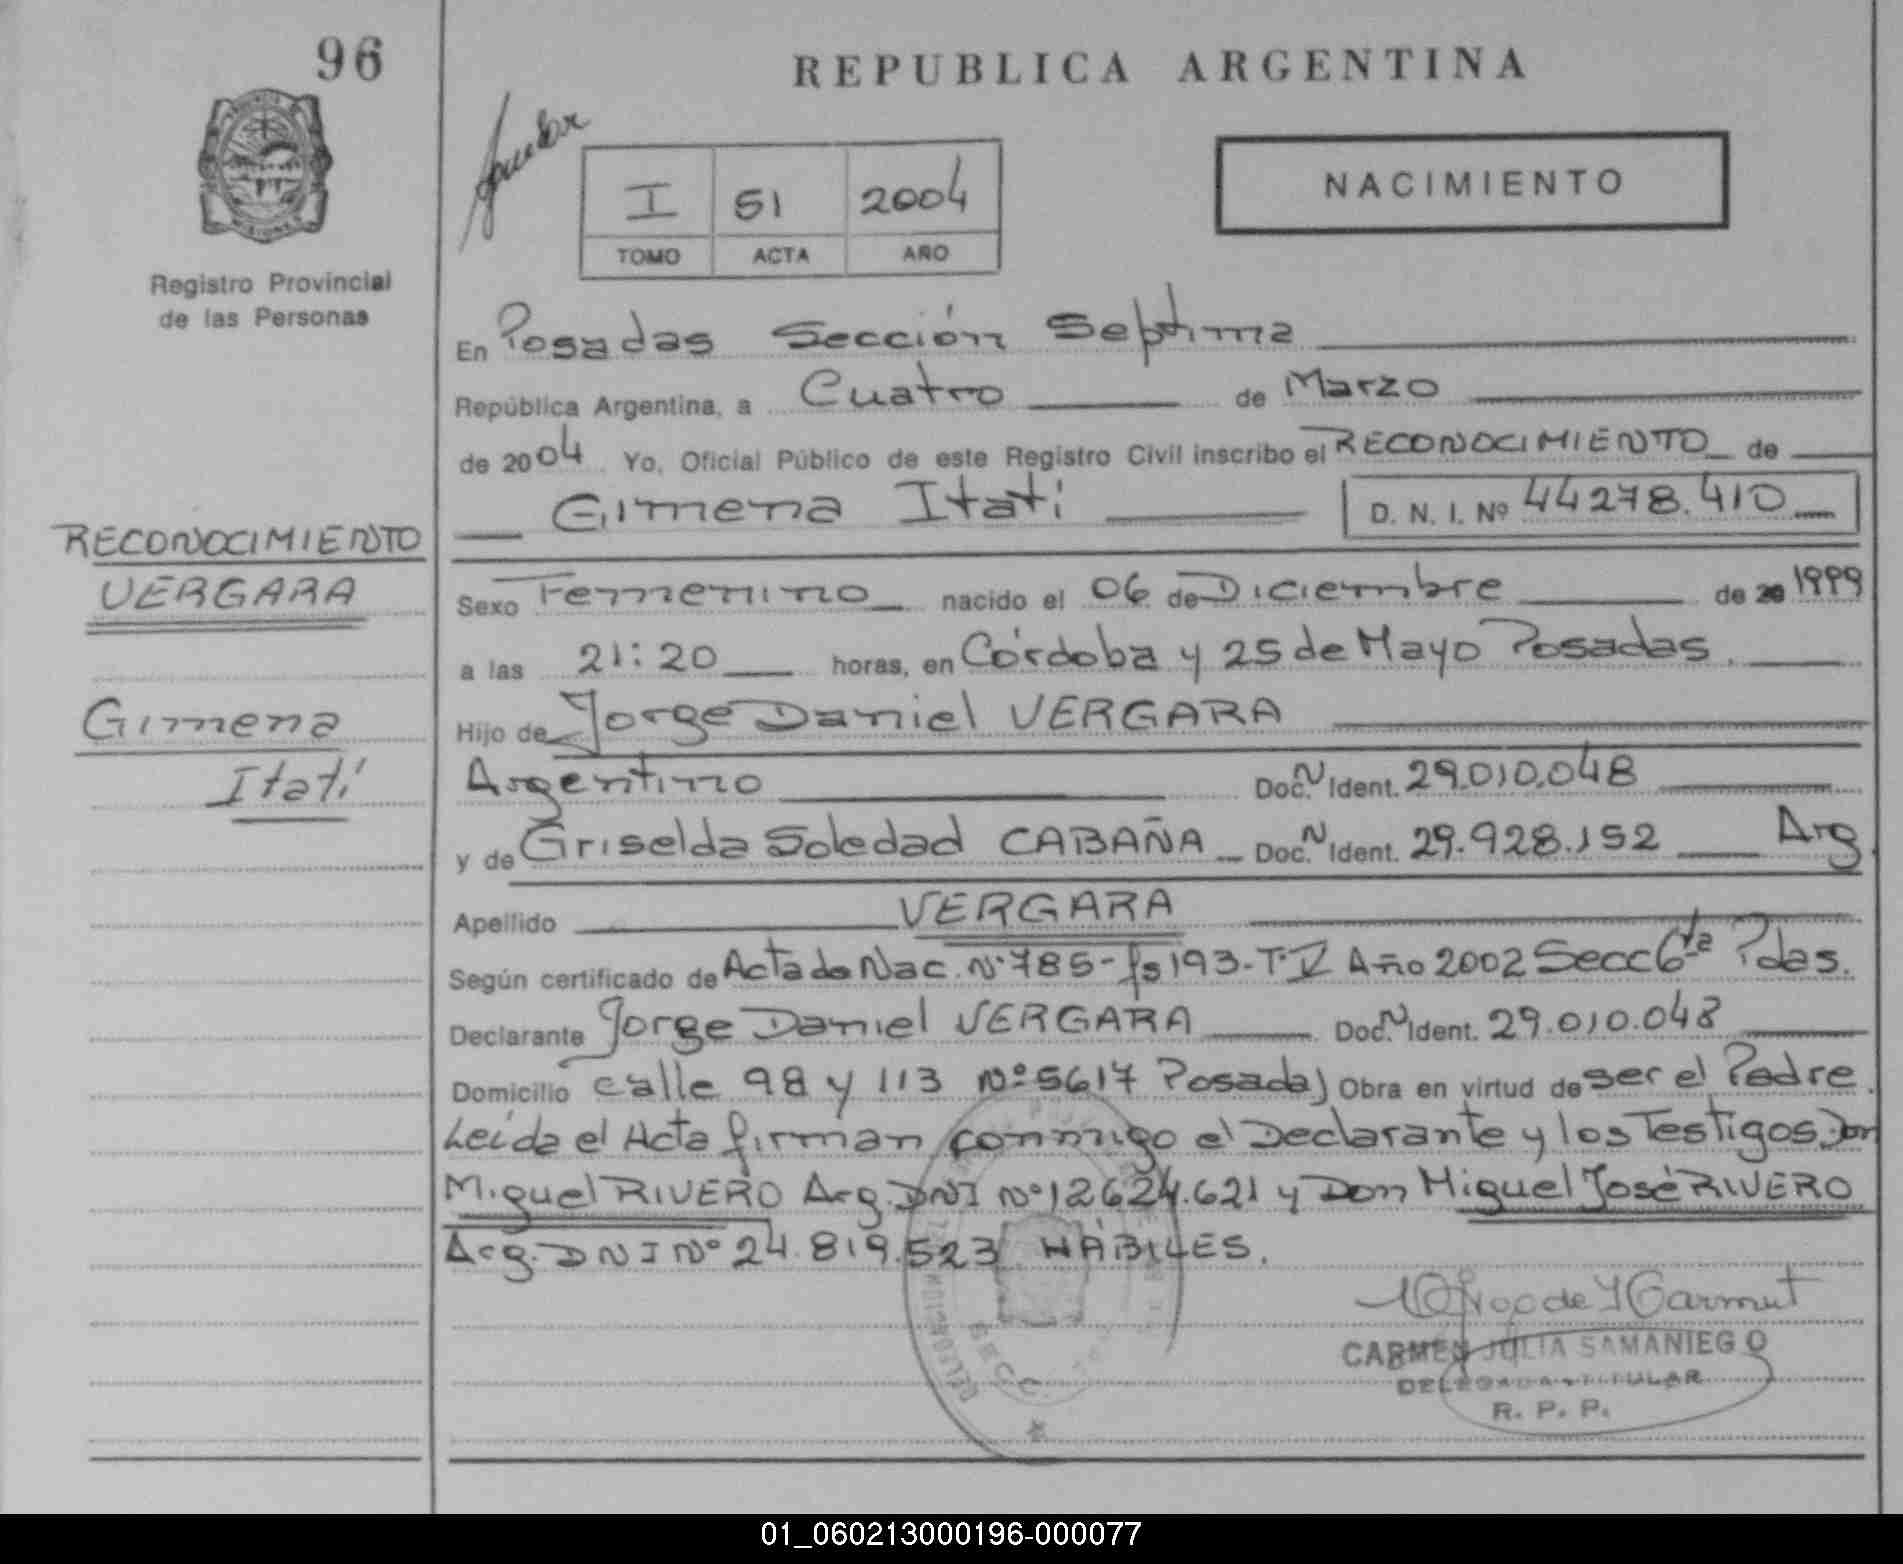 96
REPUBLICA ARGENTINA
I 51 2004
TOMO ACTA AÑO
NACIMIENTO
Registro Provincial
de las Personas
En Posadas Sección Septima
República Argentina, a Cuatro de Marzo
de 2004 Yo, Oficial Público de este Registro Civil inscribo el RECONOCIMIENTO de
Gimena Itatí D. N. I. Nº 44278.410
RECONOCIMIENTO
VERGARA
Gimena
Itatí
Sexo Femenino nacido el 06 de Diciembre de 20 1999
a las 21:20 horas, en Córdoba y 25 de Mayo Posadas.
Hijo de Jorge Daniel VERGARA
Argentino Doc. N Ident. 29.010.048
y de Griselda Soledad CABAÑA Doc. N Ident. 29.928.152 Arg
Apellido VERGARA
Según certificado de Acta de Nac. Nº 785- fs 193- T. Año 2002 Secc 6ta Pdas.
Declarante Jorge Daniel VERGARA Doc. N Ident. 29.010.048
Domicilio calle 98 y 113 Nº 5617 Posadas Obra en virtud de ser el Padre.
Leída el Acta firman conmigo el Declarante y los Testigos Don
Miguel RIVERO Arg. DNI Nº 12624.621 y Don Miguel José RIVERO
Arg. DNI Nº 24.819.523 HÁBILES.
CARMEN JULIA SAMANIEGO
DELEGADA TITULAR
R. P. P.
SECC.
01_060213000196-000077